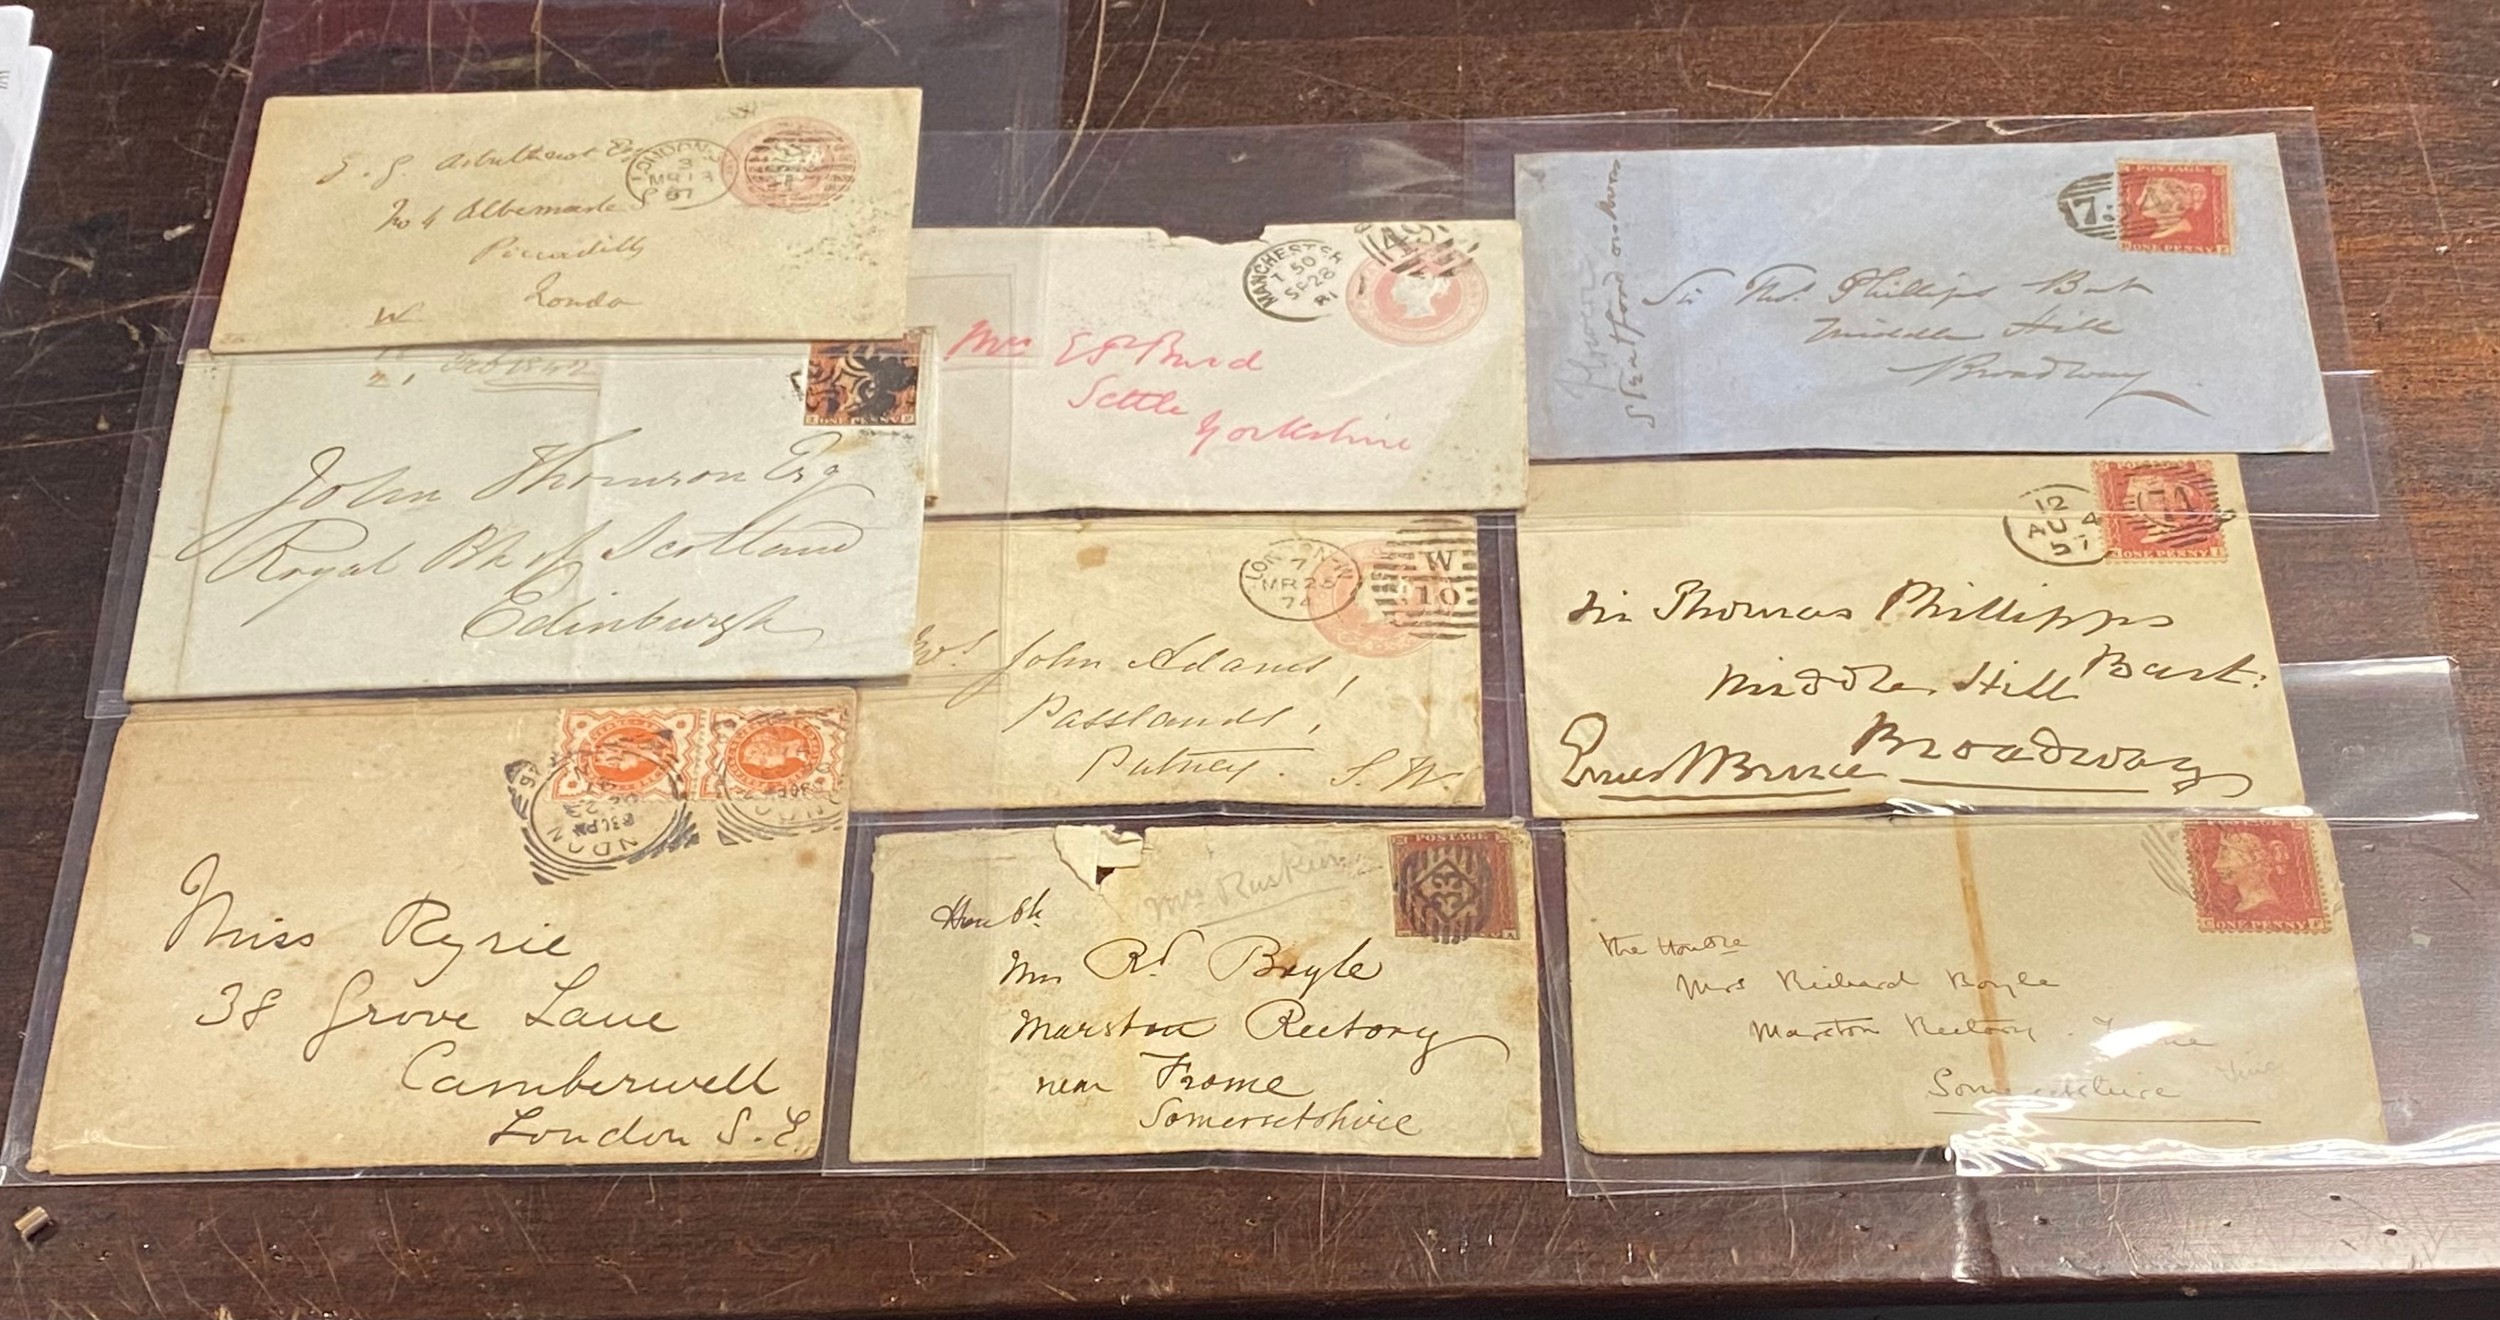 E. G. Arbuthnot Esq
No 4 Albemarle S
Piccadilly
London
W
LONDON-W
3
MR 13
67
Feb 1842
John Thomson Esq
Royal Bk of Scotland
Edinburgh
ONE PENNY
Miss Ryrie
38 Grove Lane
Camberwell
London S.E.
Mrs E S P Burd
Settle
Yorkshire
MANCHESTER
T 50
SP 28
81
498
John Adams,
Passlands,
Putney.
S. W.
LONDON-W
7
MR 25
74
W
10
Honble
Mrs Ruskin
Mrs Rd Boyle
Marston Rectory
near Frome
Somersetshire
POSTAGE
33
Stratford on Avon
Sir Thos Phillipps Bart
Middle Hill
Broadway
POSTAGE
ONE PENNY
Sir Thomas Phillipps
Bart:
Middle Hill
Broadway
Ernest Bruce
12
AU 4
57
ONE PENNY
The Honble
Mrs Richard Boyle
Marston Rectory
Somersetshire
ONE PENNY